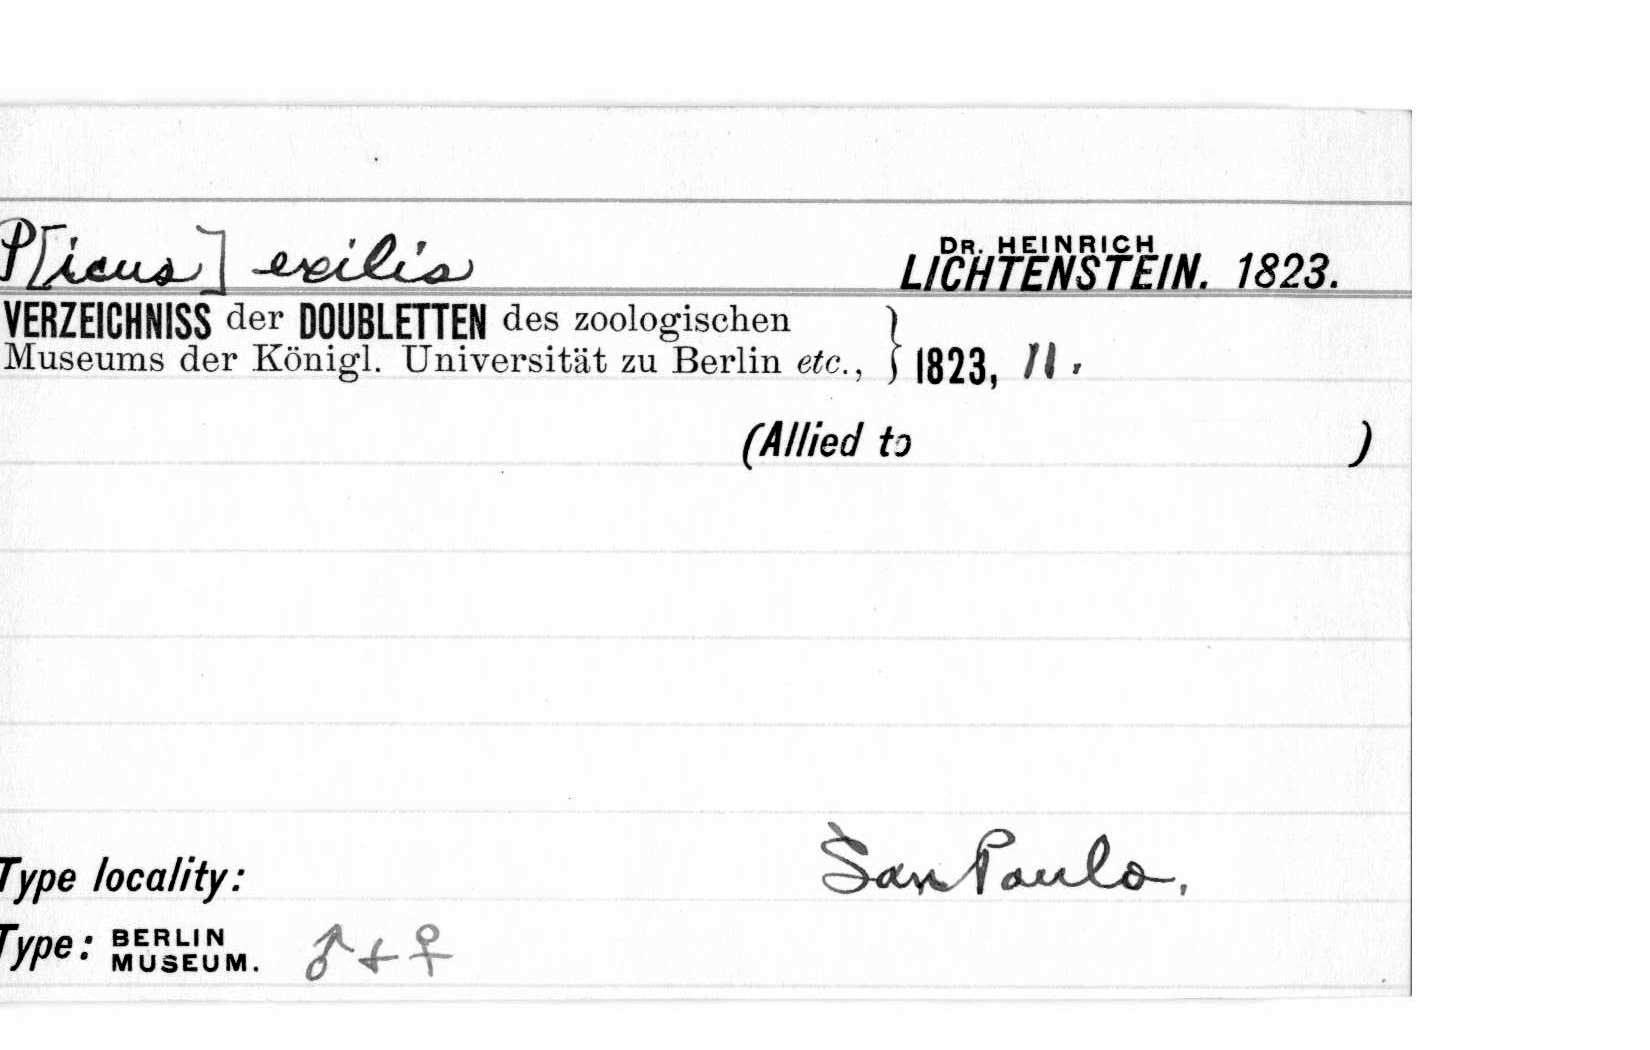 P[icus] exilis
DR. HEINRICH
LICHTENSTEIN. 1823.
VERZEICHNISS der DOUBLETTEN des zoologischen
Museums der Königl. Universität zu Berlin etc., } 1823, 11.
(Allied to )
Type locality: San Paulo.
Type: BERLIN MUSEUM. ♂ + ♀